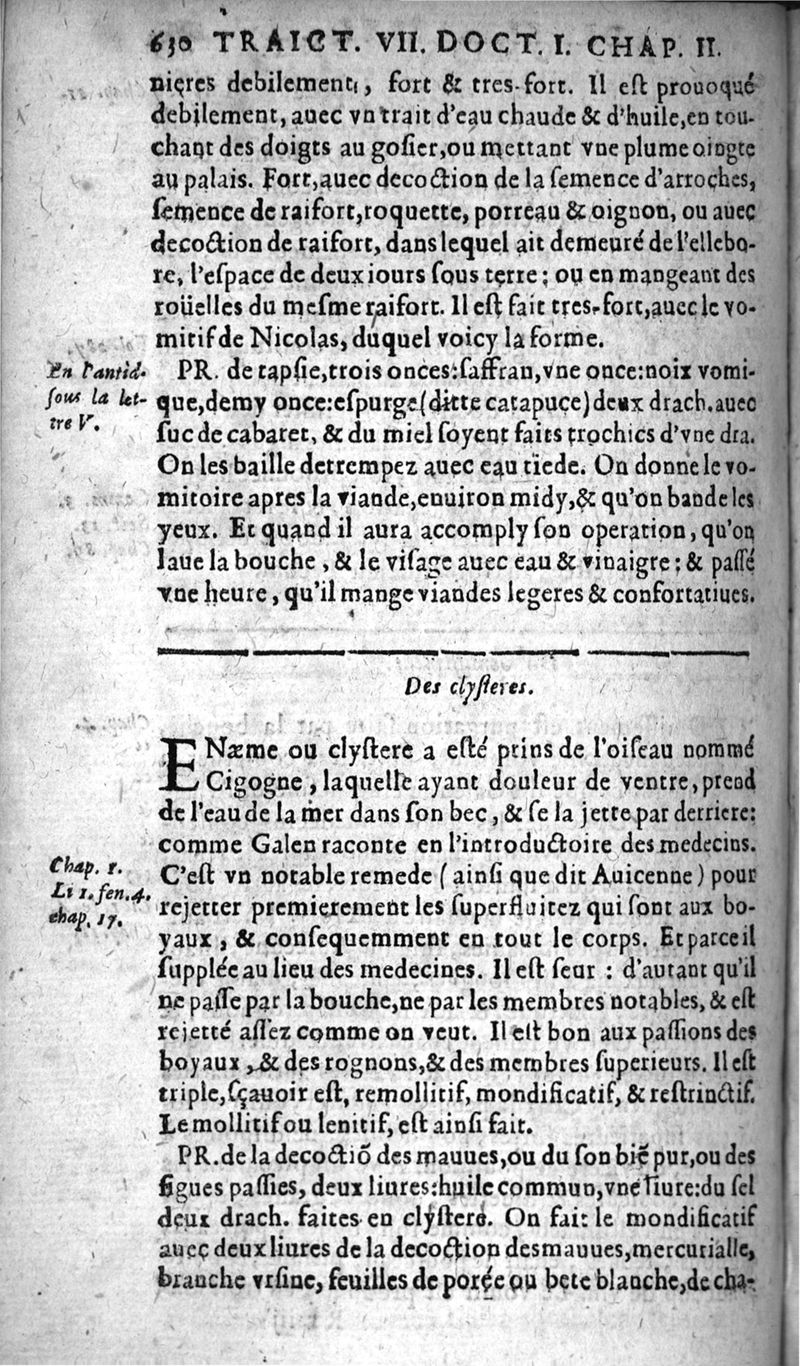 630 TRAICT. VII. DOCT. I. CHAP. II.
nieres debilement, fort & tres-fort. Il eſt prouoqué
debilement, auec vn trait d'eau chaude & d'huile, en tou-
chant des doigts au goſier, ou mettant vne plume oingte
au palais. Fort, auec decoction de la ſemence d'arroches,
ſemence de raifort, roquette, porreau & oignon, ou auec
decoction de raifort, dans lequel ait demeuré de l'ellebo-
re, l'eſpace de deux iours ſous terre ; ou en mangeant des
roüelles du meſme raifort. Il eſt fait tres-fort, auec le vo-
mitif de Nicolas, duquel voicy la forme.
En l'antid.
ſous la let-
tre V.
PR. de tapſie, trois onces: ſaffran, vne once: noix vomi-
que, demy once: eſpurge (ditte catapuce) deux drach. auec
ſuc de cabaret, & du miel ſoyent faits trochics d'vne dra.
On les baille detrempez auec eau tiede. On donne le vo-
mitoire apres la viande, enuiron midy, & qu'on bande les
yeux. Et quand il aura accomply ſon operation, qu'on
laue la bouche, & le viſage auec eau & vinaigre : & paſſé
vne heure, qu'il mange viandes legeres & confortatiues.
Des clyſteres.
ENæme ou clyſtere a eſté prins de l'oiſeau nommé
Cigogne, laquelle ayant douleur de ventre, prend
de l'eau de la mer dans ſon bec, & ſe la jette par derriere:
comme Galen raconte en l'introductoire des medecins.
Chap. 1.
Li 1. fen. 4.
chap. 17.
C'eſt vn notable remede (ainſi que dit Auicenne) pour
rejetter premierement les ſuperfluitez qui ſont aux bo-
yaux, & conſequemment en tout le corps. Et parce il
ſupplée au lieu des medecines. Il eſt ſeur : d'autant qu'il
ne paſſe par la bouche, ne par les membres notables, & eſt
rejetté aſſez comme on veut. Il eſt bon aux paſſions des
boyaux, & des rognons, & des membres ſuperieurs. Il eſt
triple, ſçauoir eſt, remollitif, mondificatif, & reſtrinctif.
Le mollitif ou lenitif, eſt ainſi fait.
PR. de la decoctiõ des mauues, ou du ſon biẽ pur, ou des
figues paſſies, deux liures: huile commun, vne liure: du ſel
deux drach. faites en clyſtere. On fait le mondificatif
auec deux liures de la decoction des mauues, mercurialle,
branche vrſine, feuilles de porée ou bete blanche, de cha-